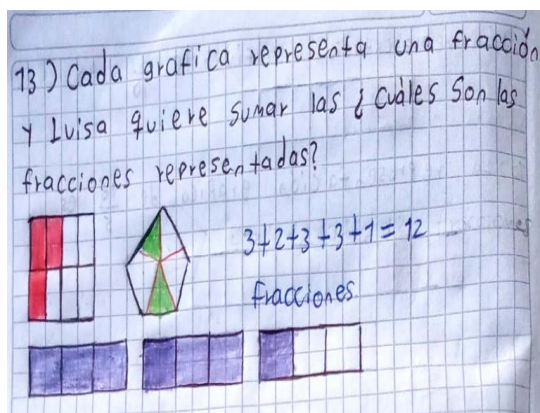 13) Cada grafica representa una fracción
y Luisa quiere sumar las ¿ Cuáles Son las
fracciones representadas?
3+2+3+3+1= 12
fracciones